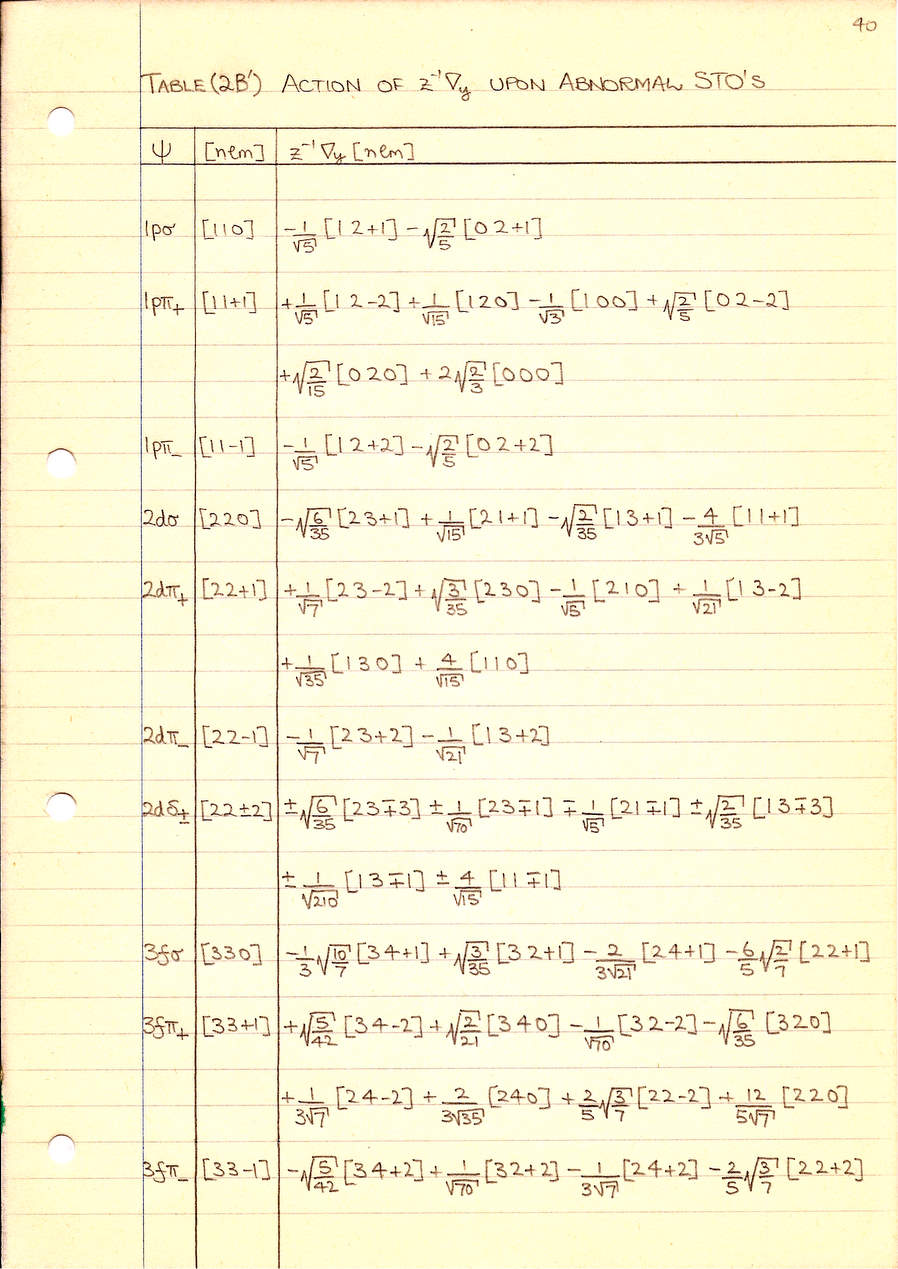 40
TABLE (2B') ACTION OF z⁻¹∇y UPON ABNORMAL STO'S
ψ [nlm] z⁻¹∇y [nlm]
1pσ [110] -1/√5 [12+1] -√(2/5) [02+1]
1pπ₊ [11+1] +1/√5 [12-2] +1/√15 [120] -1/√3 [100] +√(2/5) [02-2]
+√(2/15) [020] +2√(2/3) [000]
1pπ₋ [11-1] -1/√5 [12+2] -√(2/5) [02+2]
2dσ [220] -√(6/35) [23+1] +1/√15 [21+1] -√(2/35) [13+1] -4/(3√5) [11+1]
2dπ₊ [22+1] +1/√7 [23-2] +√(3/35) [230] -1/√5 [210] +1/√21 [13-2]
+1/√35 [130] +4/√15 [110]
2dπ₋ [22-1] -1/√7 [23+2] -1/√21 [13+2]
2dδ± [22±2] ±√(6/35) [23∓3] ±1/√70 [23∓1] ∓1/√5 [21∓1] ±√(2/35) [13∓3]
±1/√210 [13∓1] ±4/√15 [11∓1]
3fσ [330] -1/3√(10/7) [34+1] +√(3/35) [32+1] -2/(3√21) [24+1] -6/5√(2/7) [22+1]
3fπ₊ [33+1] +√(5/42) [34-2] +√(2/21) [340] -1/√70 [32-2] -√(6/35) [320]
+1/(3√7) [24-2] +2/(3√35) [240] +2/5√(3/7) [22-2] +12/(5√7) [220]
3fπ₋ [33-1] -√(5/42) [34+2] +1/√70 [32+2] -1/(3√7) [24+2] -2/5√(3/7) [22+2]